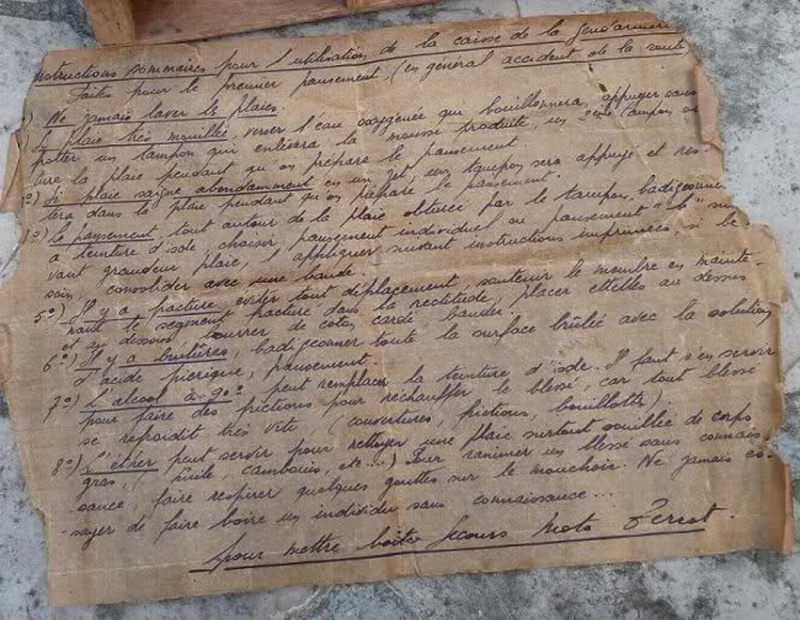 nstructions sommaires pour l'utilisation de la caisse de la gendarmerie
faites pour le premier pansement. (en général accident de la route
) Ne jamais laver les plaies.
) La plaie très mouillée, verser l'eau oxygénée qui bouillonnera, appuyer sans
frotter un tampon qui enlèvera la mousse produite, un 2ème tampon
ture la plaie pendant qu'on prépare le pansement.
°) Si plaie saigne abondamment en un jet un tampon sera appuyé et res-
tera dans la plaie pendant qu'on prépare le pansement.
4°) Le pansement, tout autour de la plaie obturée par le tampon, badigeonner
à teinture d'iode, choisir pansement individuel ou pansement
vant grandeur plaie, l'appliquer suivant instructions imprimées, si be-
soin, consolider avec une bande.
5°) Il y a fracture, éviter tout déplacement, soutenir le membre en mainte-
nant le segment fracturé dans la rectitude, placer attelles au dessus
et au dessous, bourrer de coton cardé, bander.
6°) Il y a brûlures, badigeonner toute la surface brûlée avec la solution
d'acide picrique, pansement.
7°) L'alcool à 90° peut remplacer la teinture d'iode. Il faut s'en servir
pour faire des frictions pour réchauffer le blessé, car tout blessé
se refroidit très vite (couvertures, frictions, bouillotte).
8°) L'éther peut servir pour nettoyer une plaie surtout souillée de corps
gras, (huile, cambouis, etc...) Pour ranimer un blessé sans connais
sance, faire respirer quelques gouttes sur le mouchoir. Ne jamais es-
-sayer de faire boire un individu sans connaissance...
pour mettre boîte Secours Moto Terrot.